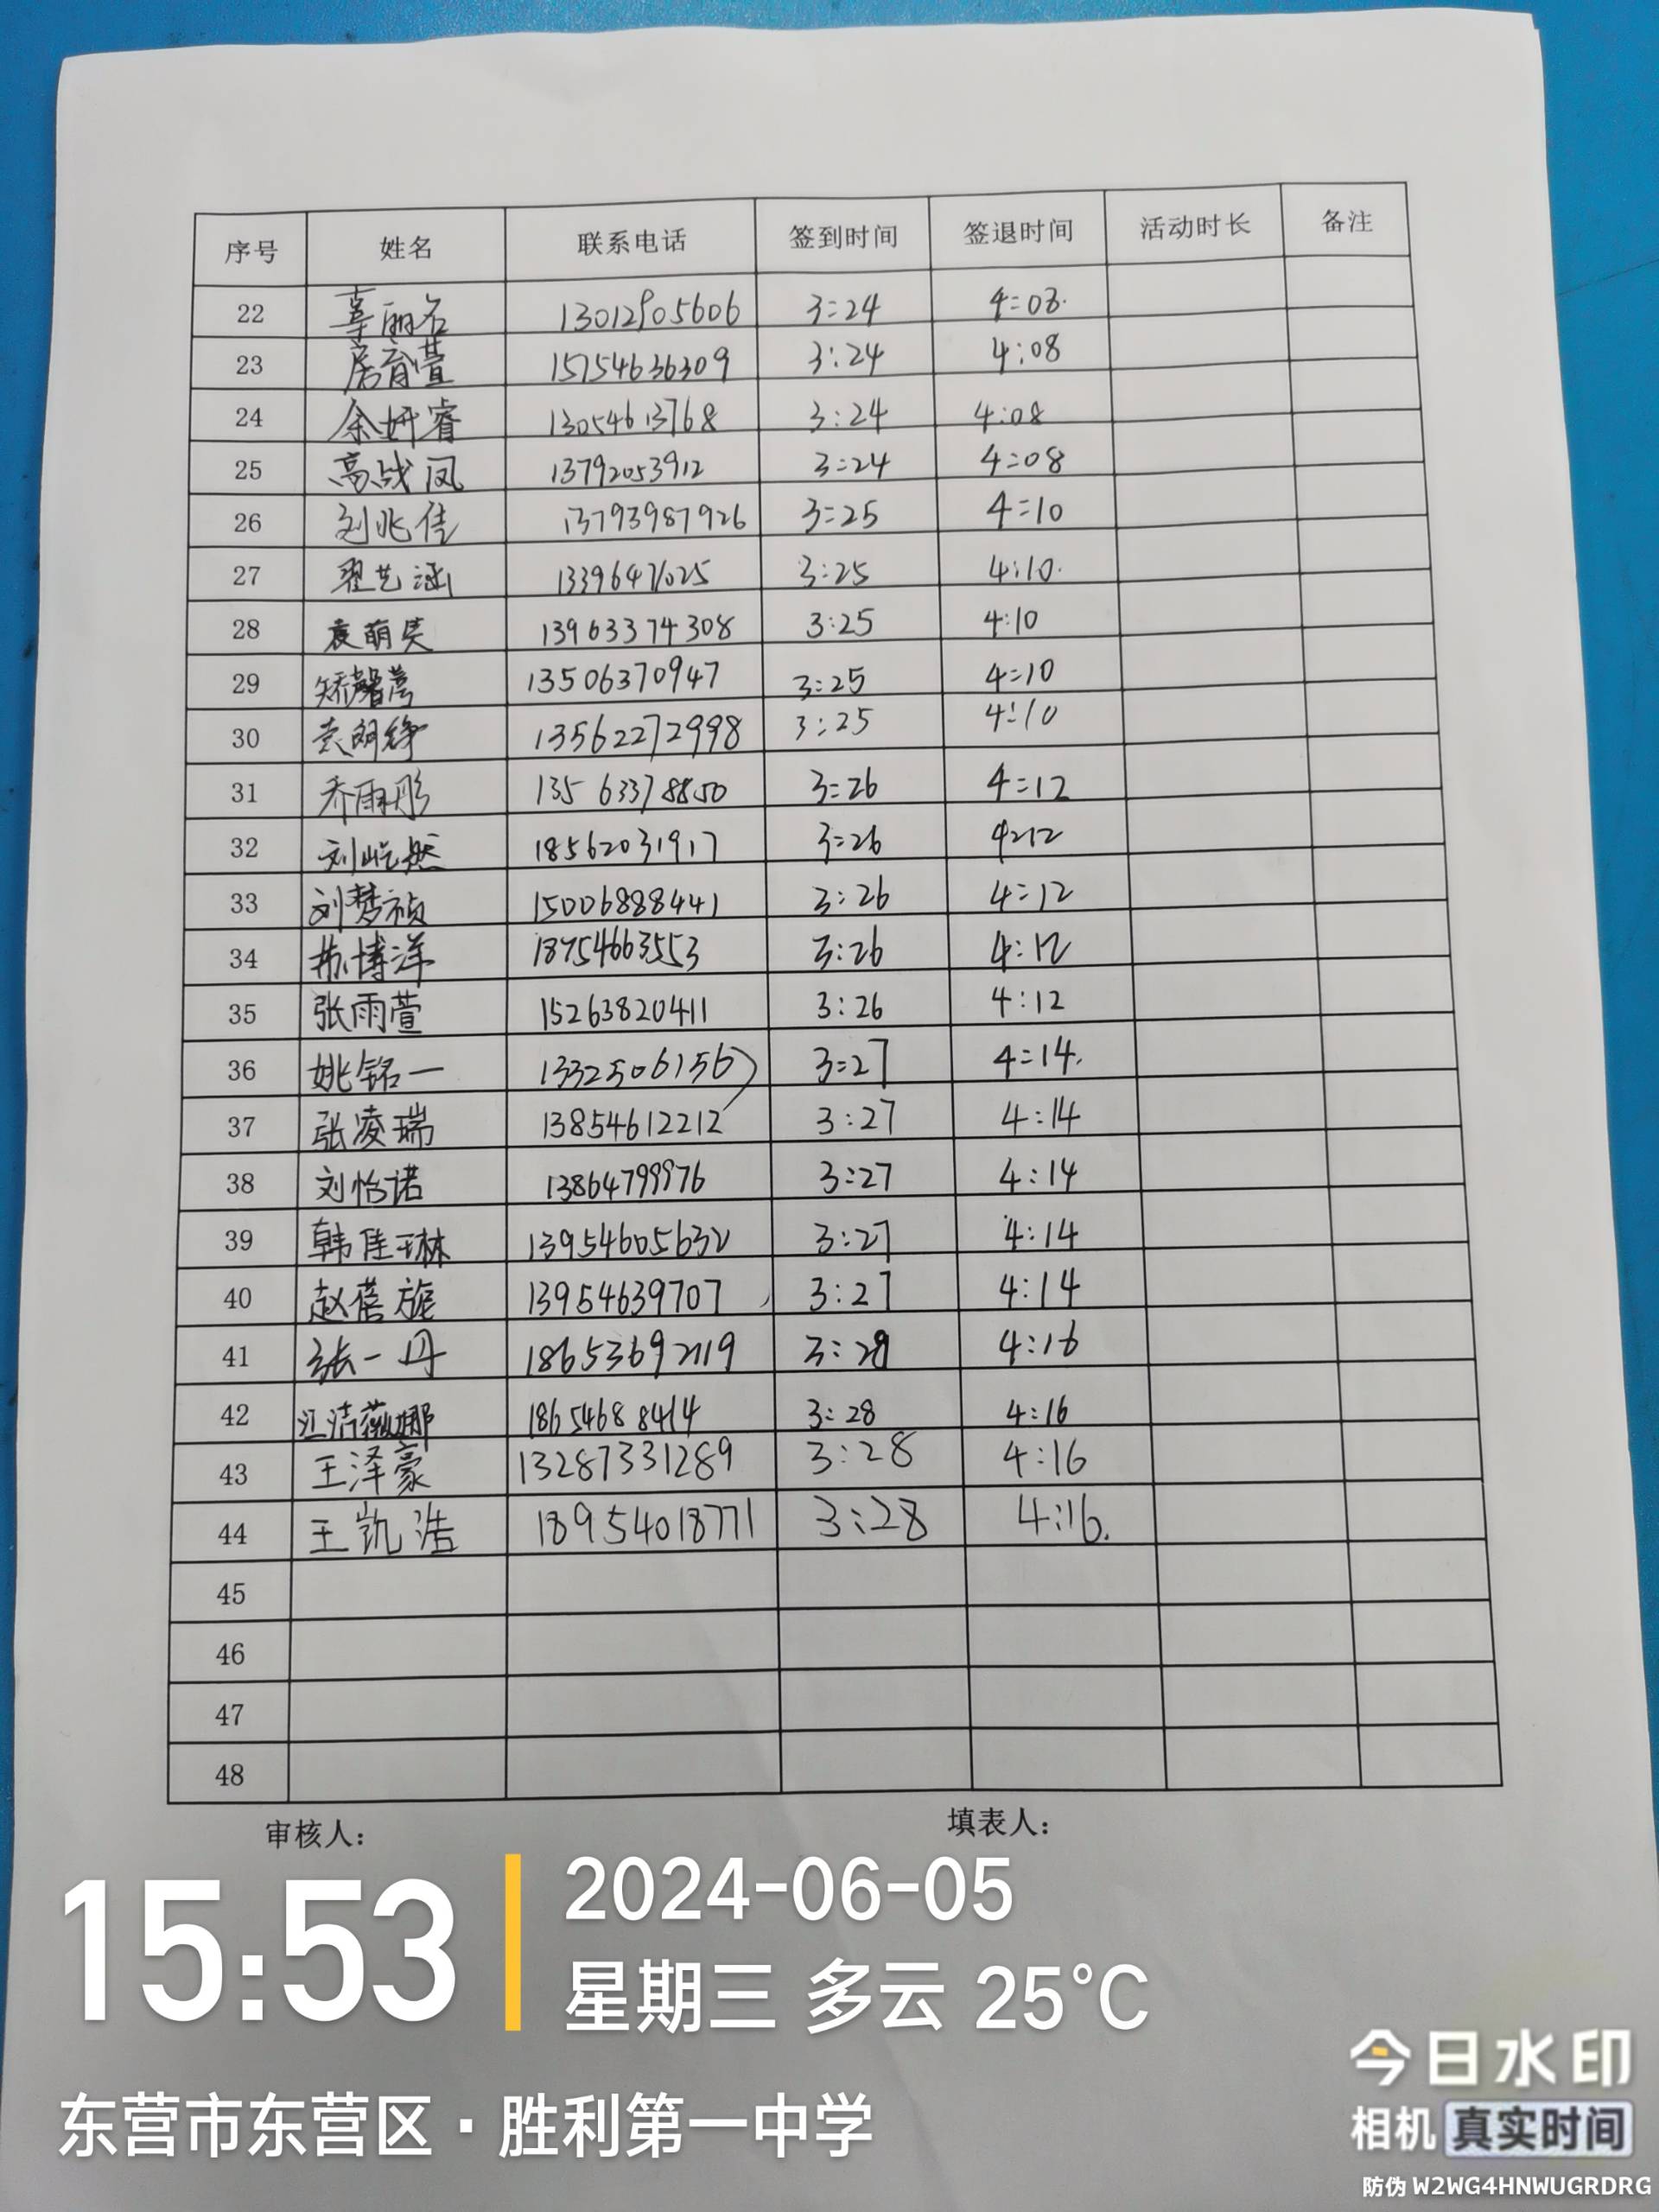 序号 姓名 联系电话 签到时间 签退时间 活动时长 备注
22 辜丽名 13012905606 3:24 4:08
23 房育萱 15754636309 3:24 4:08
24 余妍睿 13054613768 3:24 4:08
25 高战凤 13792053912 3:24 4:08
26 刘兆佳 13793987926 3:25 4:10
27 翟艺涵 13396471025 3:25 4:10
28 袁萌昊 13963374308 3:25 4:10
29 13506370947 3:25 4:10
30 13562272998 3:25 4:10
31 乔雨彤 13563378850 3:26 4:12
32 刘屹然 18562031917 3:26 4:12
33 刘梦祯 15006888441 3:26 4:12
34 苏博洋 18754663553 3:26 4:12
35 张雨萱 15263820411 3:26 4:12
36 姚铭一 13325061567 3:27 4:14
37 张凌瑞 13854612212 3:27 4:14
38 刘怡诺 13864799976 3:27 4:14
39 韩佳琳 13954605632 3:27 4:14
40 赵蓓旎 13954639707 3:27 4:14
41 张一丹 18653692119 3:28 4:16
42 18654688414 3:28 4:16
43 王泽豪 13287331289 3:28 4:16
44 王凯浩 18954018771 3:28 4:16
45
46
47
48
审核人： 填表人：
15:53
2024-06-05
星期三 多云 25°C
东营市东营区·胜利第一中学
今日水印
相机 真实时间
防伪 W2WG4HNWUGRDRG